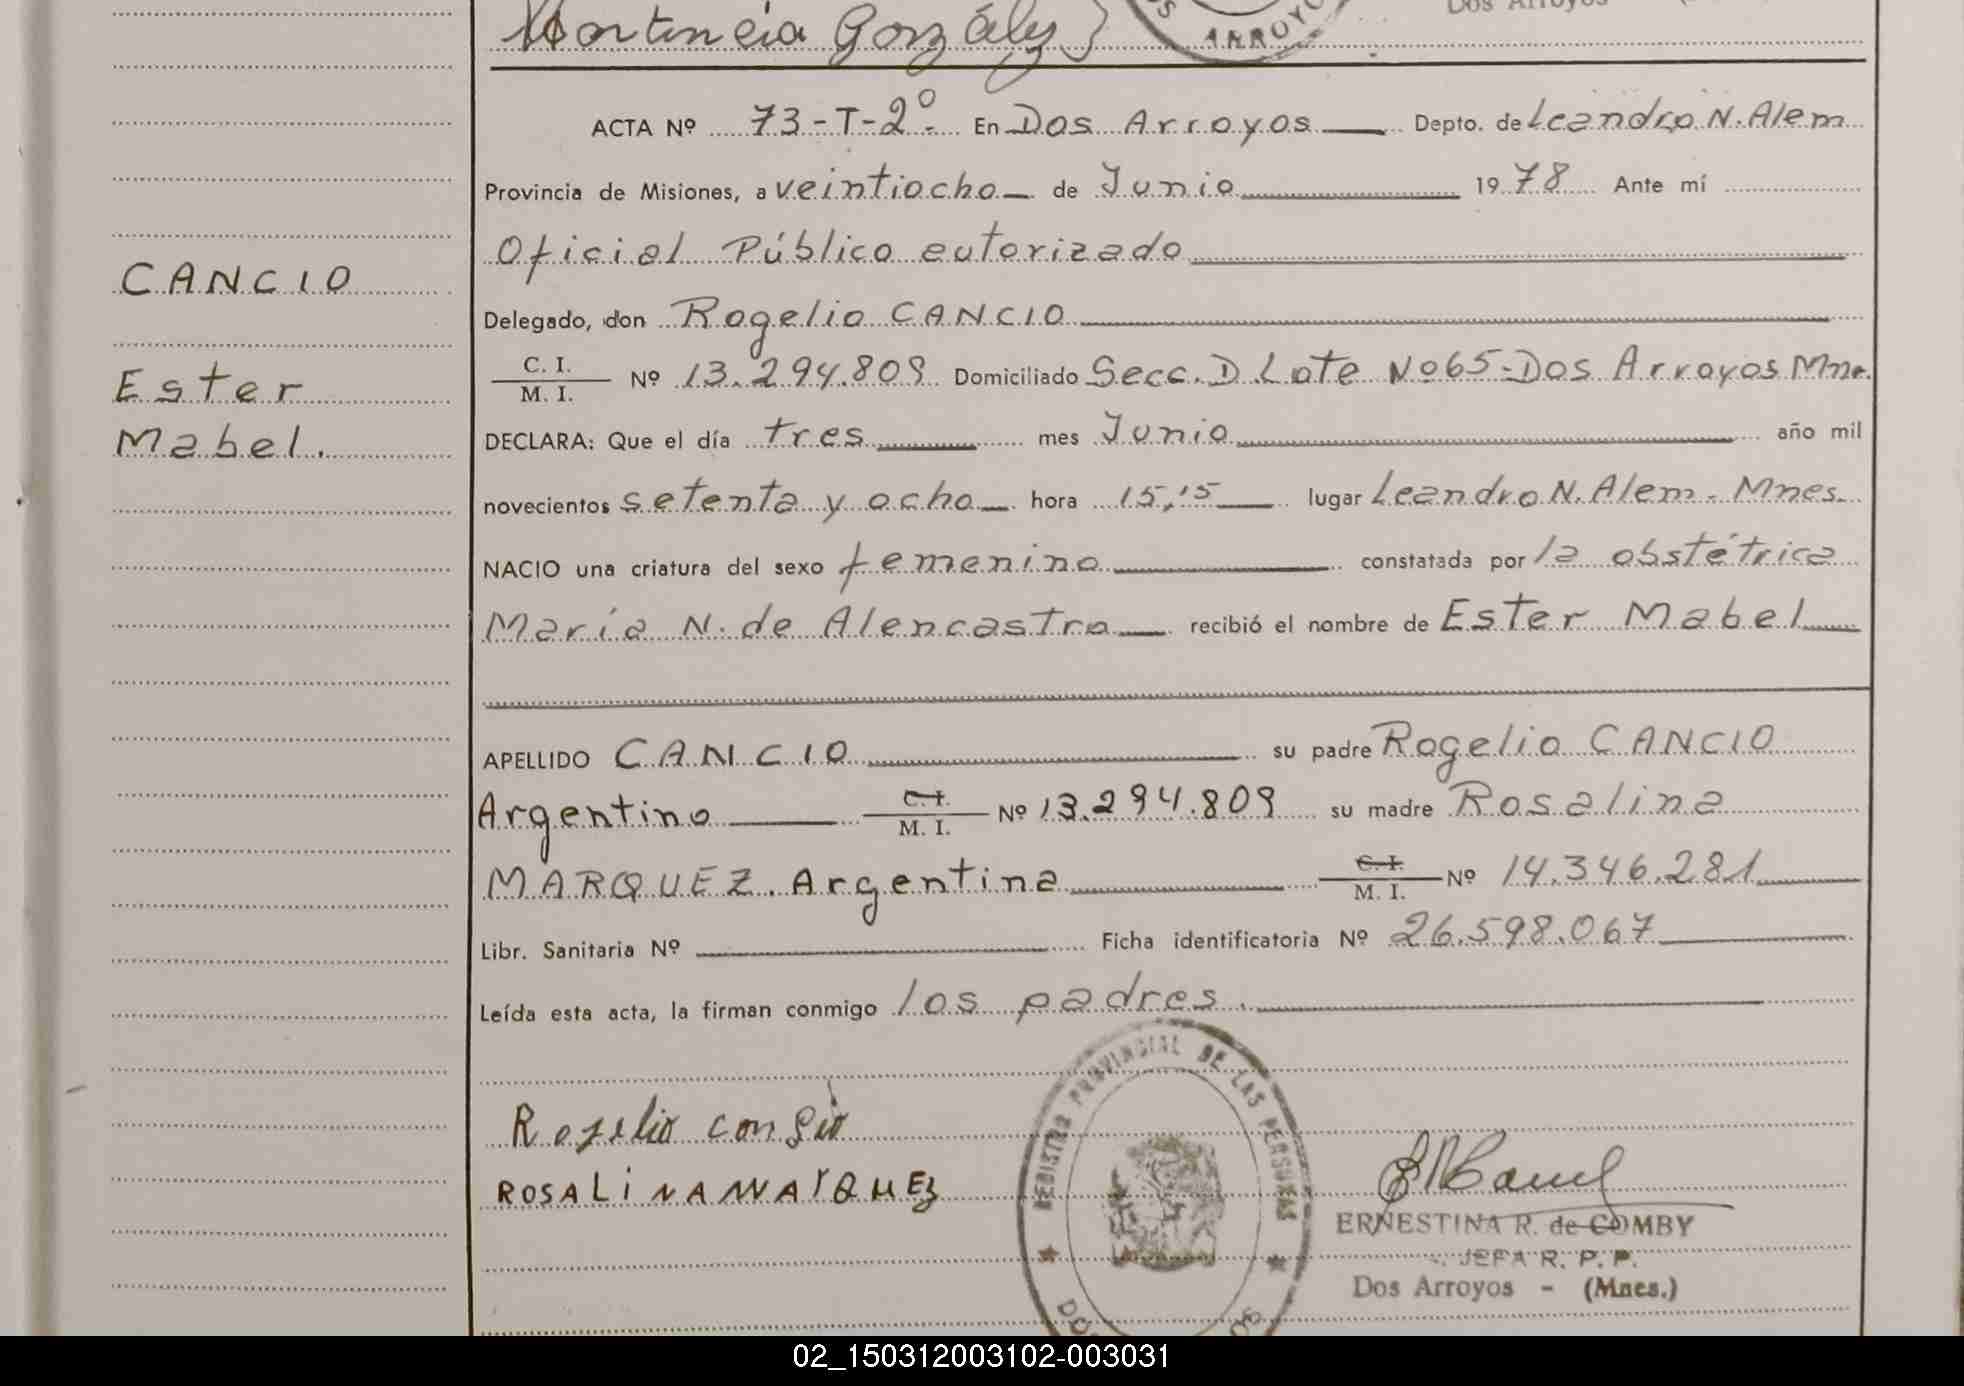 Hortencia González
ARROYO
Dos Arroyos
ACTA Nº 73-T-2º- En Dos Arroyos Depto. de Leandro N. Alem
Provincia de Misiones, a veintiocho de Junio 1978 Ante mí
Oficial Público autorizado
CANCIO
Delegado, don Rogelio CANCIO
C. I.
M. I. Nº 13.294.809 Domiciliado Secc. D Lote Nº65-Dos Arroyos Mne.
Ester
Mabel.
DECLARA: Que el día tres mes Junio año mil
novecientos setenta y ocho hora 15,15 lugar Leandro N. Alem - Mnes.
NACIO una criatura del sexo femenino constatada por la obstétrica
María N. de Alencastro recibió el nombre de Ester Mabel
APELLIDO CANCIO su padre Rogelio CANCIO
Argentino C. I. M. I. Nº 13.294.809 su madre Rosalina
MARQUEZ. Argentina C. I. M. I. Nº 14.346.281
Libr. Sanitaria Nº Ficha identificatoria Nº 26.598.067
Leída esta acta, la firman conmigo los padres.
REGISTRO PROVINCIAL DE LAS PERSONAS
Rogelio consio
ROSALINA MARQUEZ
ERNESTINA R. de COMBY
JEFA R. P. P.
Dos Arroyos - (Mnes.)
02_150312003102-003031